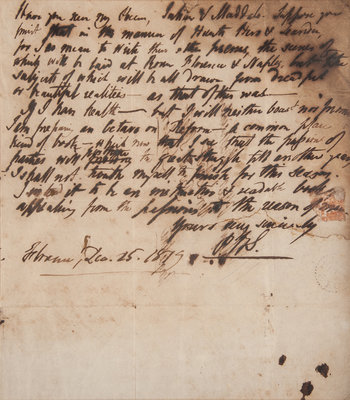 Have you seen my Poem, Julian & Maddalo? Suppose you
print that in the manner of Hunts Hero & Leander,
for I mean to write three other poems, the scenes of
which will be laid at Rome Florence & Naples, but the
subjects of which will be all drawn from dreadful
or beautiful realities — as that of this was —
If I have health — but I will neither boast nor promise
I am preparing an octavo on Reform — a common place
kind of book — which now that I see the passion of
parties will postpone the great struggle till another year
I shall not trouble myself to finish for this season.
I intend it to be an instructive & readable book
appealing from the passions to the reason of
Yours very sincerely
PBS.
Florence, Dec. 1819